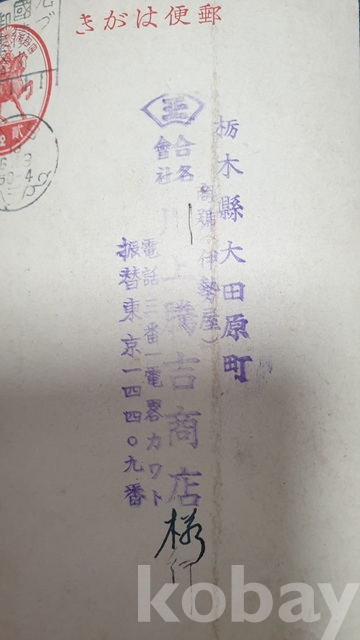 郵便はがき
栃木縣大田原町
(商號 伊勢屋)
王
合名會社 川上勝吉商店 様行
電話三番 電畧カワト
振替東京一四四〇九番
kobay